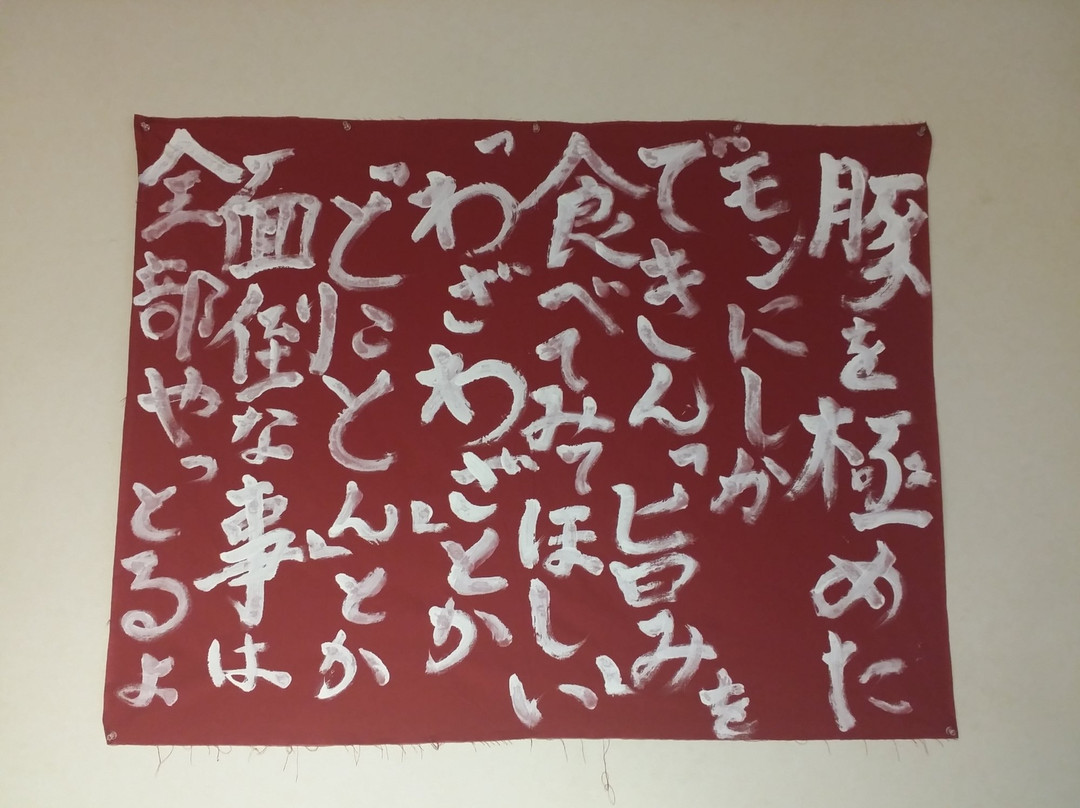 豚を極めた
モンにしか
できん「旨み」を
食べてみてほしい
「わざわざ」とか
「とことん」とか
面倒な事は
全部やっとるよ